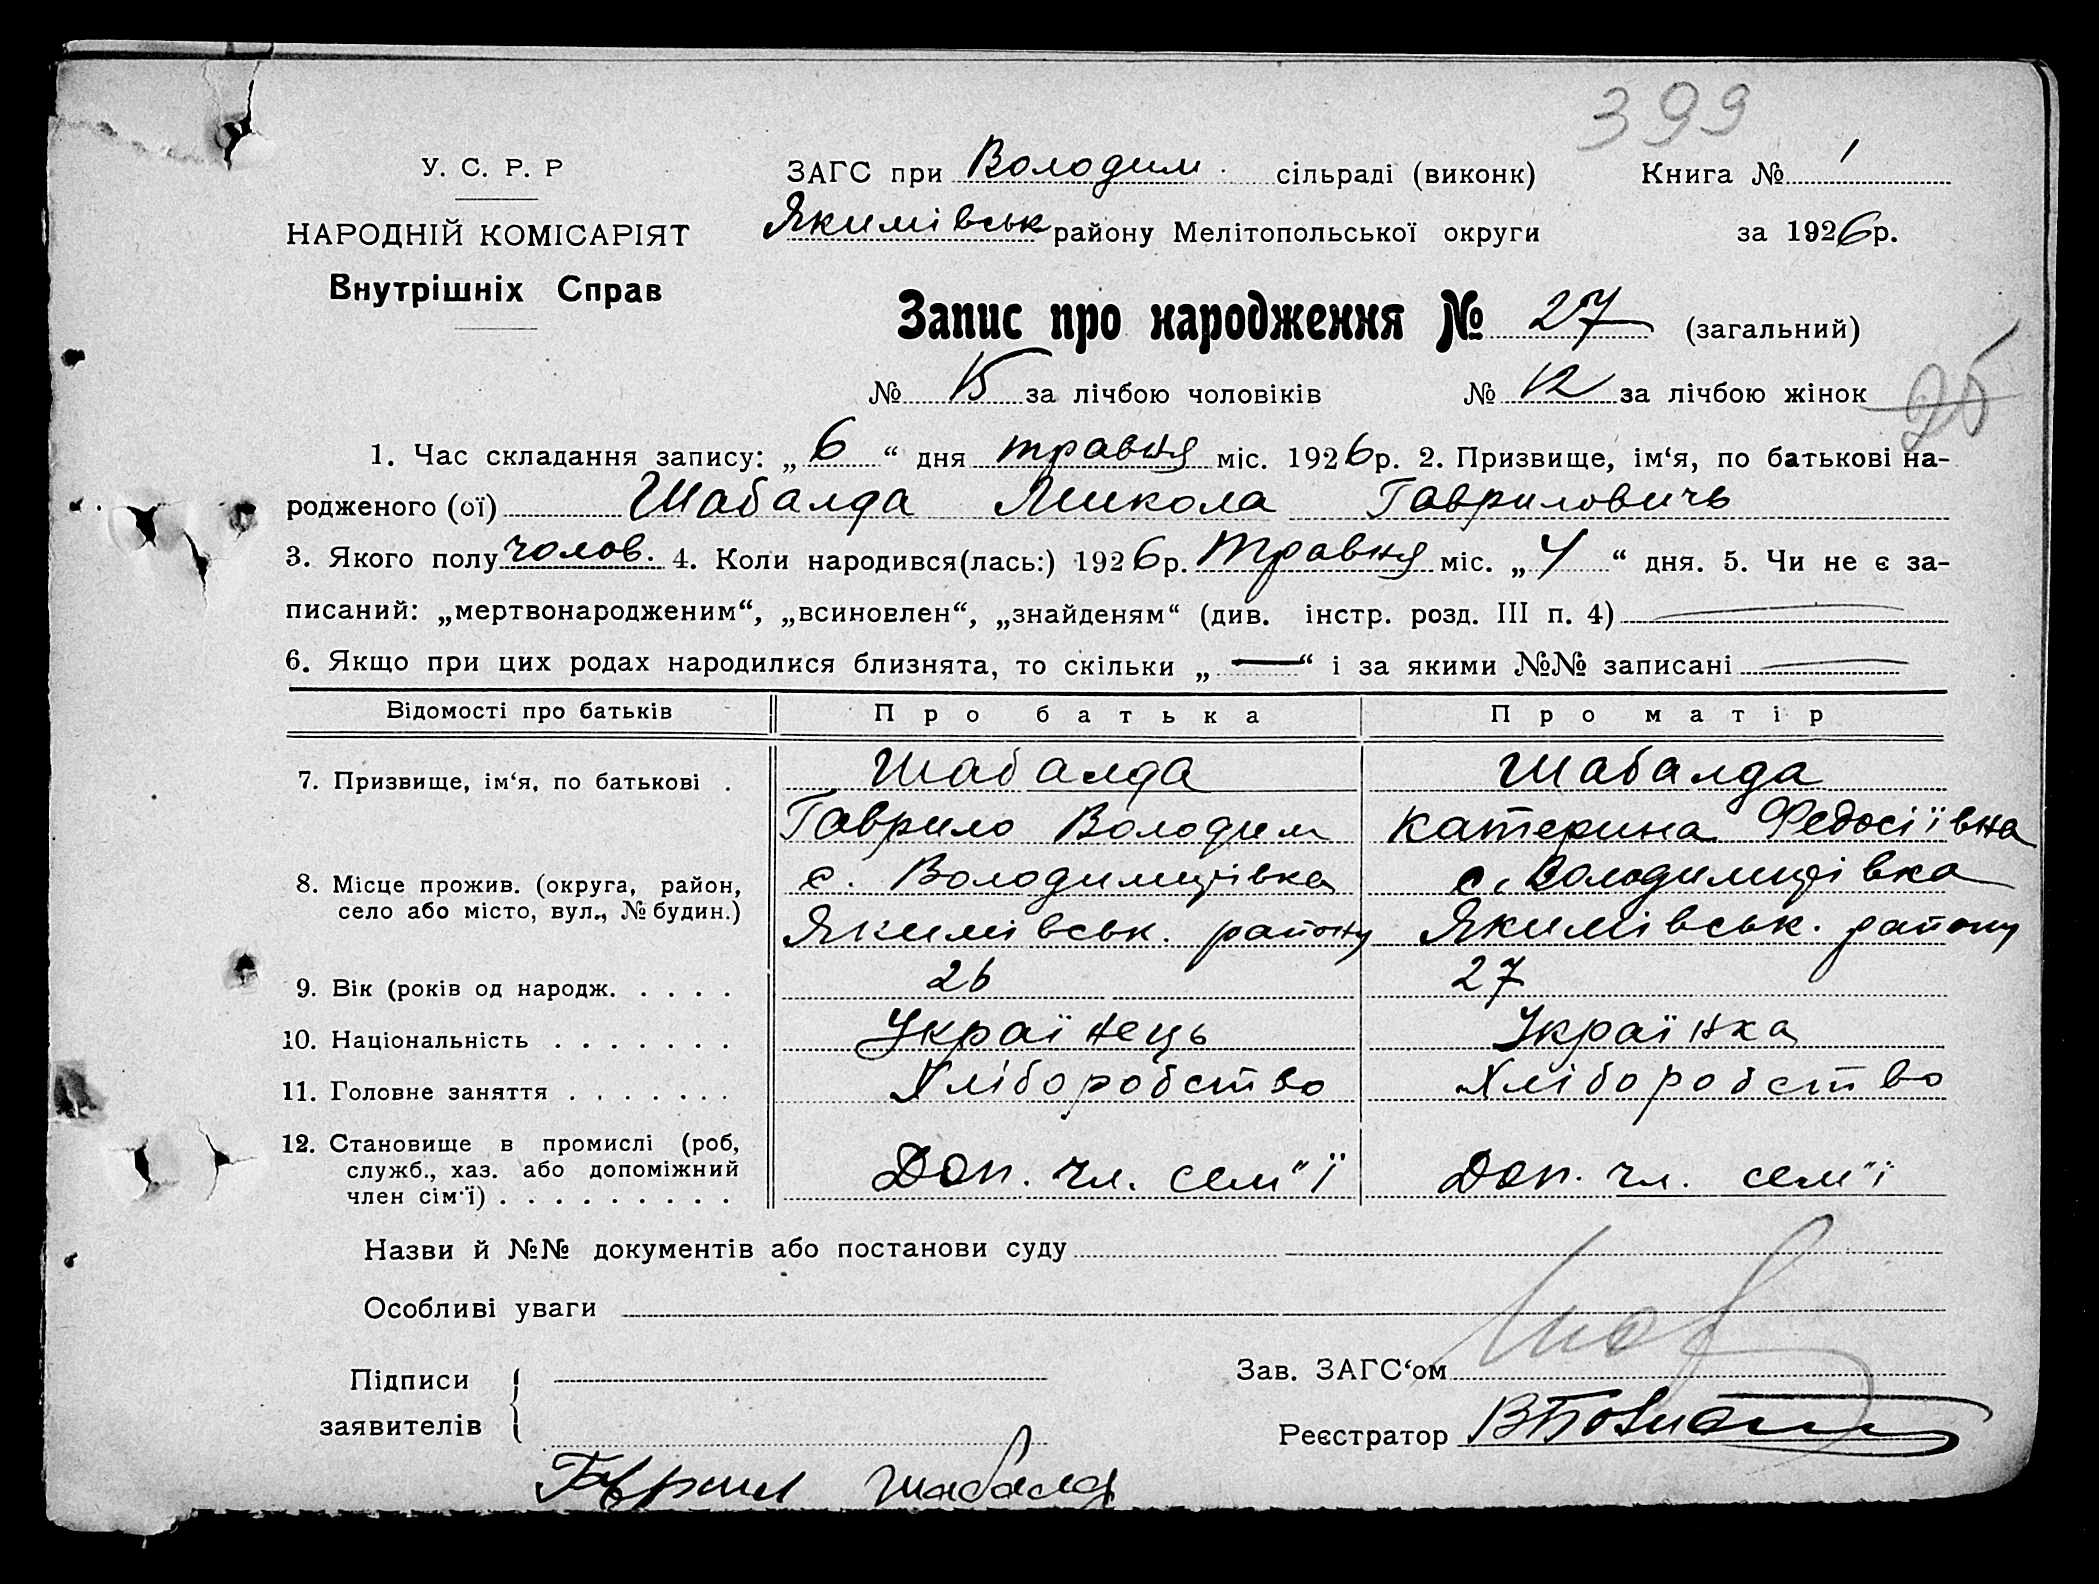 399
У. С. Р. Р
ЗАГС при Володим. сільраді (виконк) Книга № 1
НАРОДНІЙ КОМІСАРІЯТ
Якимівськ району Мелітопольської округи за 1926р.
Внутрішніх Справ
Запис про народження № 27 (загальний)
№ 15 за лічбою чоловіків № 12 за лічбою жінок
1. Час складання запису: „6“ дня травня міс. 1926р. 2. Призвище, ім‘я, по батькові на-
родженого (ої) Шабалда Микола Гавриловичь
3. Якого полу чолов. 4. Коли народився(лась:) 1926р. Травня міс. „4“ дня. 5. Чи не є за-
писаний: „мертвонародженим“, „всиновлен“, „знайденям“ (див. інстр. розд. III п. 4)
6. Якщо при цих родах народилися близнята, то скільки „—“ і за якими №№ записані
Відомості про батьків Про батька Про матір
7. Призвище, ім‘я, по батькові . Шабалда Шабалда
Гаврило Володим Катерина Федосіївна
8. Місце прожив. (округа, район, с. Володимирівка с. Володимирівка
село або місто, вул., № будин.) Якимівськ. району Якимівськ. району
9. Вік (років од народж. . . . . 26 27
10. Національність . . . . . . . Українець Українка
11. Головне заняття . . . . . . . Хліборобство Хліборобство
12. Становище в промислі (роб,
служб., хаз. або допоміжний Доп. чл. сем"ї Доп. чл. сем"ї
член сім'ї) . . . . . . . . .
Назви й №№ документів або постанови суду
Особливі уваги
Підписи Зав. ЗАГС‘ом
заявителів Реєстратор
Гаврил Шабалд